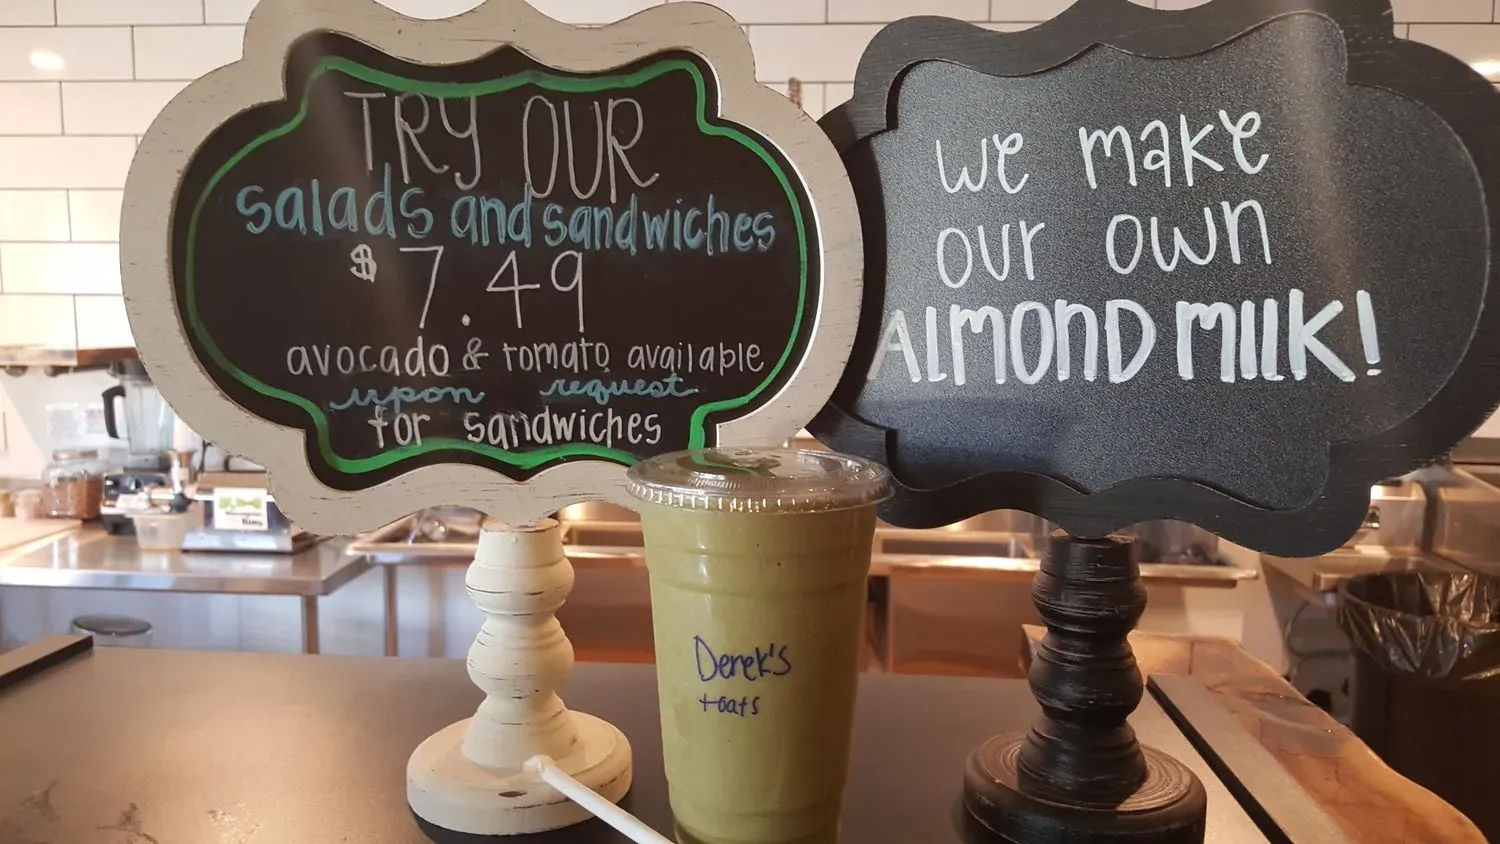 TRY OUR
salads and sandwiches
$7.49
avocado & tomato available
upon request
for sandwiches
we make
our own
ALMOND MILK!
Derek's
+oats